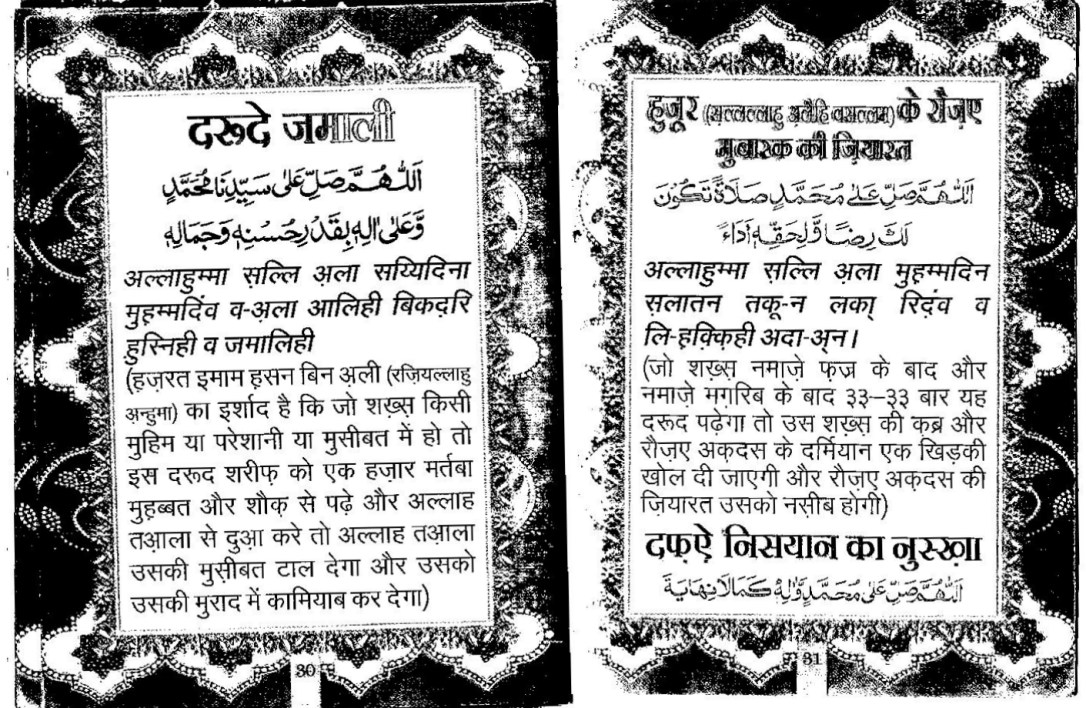 दरूदे जमाली
اَللّٰهُمَّ صَلِّ عَلٰی سَیِّدِنَا مُحَمَّدٍ
وَّعَلٰی اٰلِهٖ بِقَدْرِ حُسْنِهٖ وَجَمَالِهٖ
अल्लाहुम्मा स़ल्लि अ़ला सय्यिदिना
मुह़म्मदिंव व-अ़ला आलिही बिकद़रि
हुस्निही व जमालिही
(ह़ज़रत इमाम ह़सन बिन अ़ली (रज़ियल्लाहु
अ़न्हुमा) का इर्शाद है कि जो शख़्स़ किसी
मुहिम या परेशानी या मुस़ीबत में हो तो
इस दरूद शरीफ़ को एक हज़ार मर्तबा
मुह़ब्बत और शौक़ से पढ़े और अल्लाह
तआ़ला से दुआ़ करे तो अल्लाह तआ़ला
उसकी मुस़ीबत टाल देगा और उसको
उसकी मुराद में कामियाब कर देगा)
30
हुज़ूर (सल्लल्लाहु अ़लैहि वसल्लम) के रौज़ए
मुबारक की ज़ियारत
اَللّٰهُمَّ صَلِّ عَلٰی مُحَمَّدٍ صَلَاةً تَكُوْنُ
لَكَ رِضًا وَّلِحَقِّهٖ اَدَاءً
अल्लाहुम्मा स़ल्लि अ़ला मुह़म्मदिन
स़लातन तकू-न लका् रिद़ंव व
लि-ह़क़्क़िही अदा-अ्न।
(जो शख़्स़ नमाज़े फ़ज्र के बाद और
नमाज़े मग़रिब के बाद ३३–३३ बार यह
दरूद पढ़ेगा तो उस शख़्स़ की कब्र और
रौज़ए अक़्दस के दर्मियान एक खिड़की
खोल दी जाएगी और रौज़ए अक़्दस की
ज़ियारत उसको नस़ीब होगी)
दफ़्ऐ निसयान का नुस्ख़ा
اَللّٰهُمَّ صَلِّ عَلٰی مُحَمَّدٍ وَّاٰلِهٖ كَمَا لَانِهَايَةَ
31